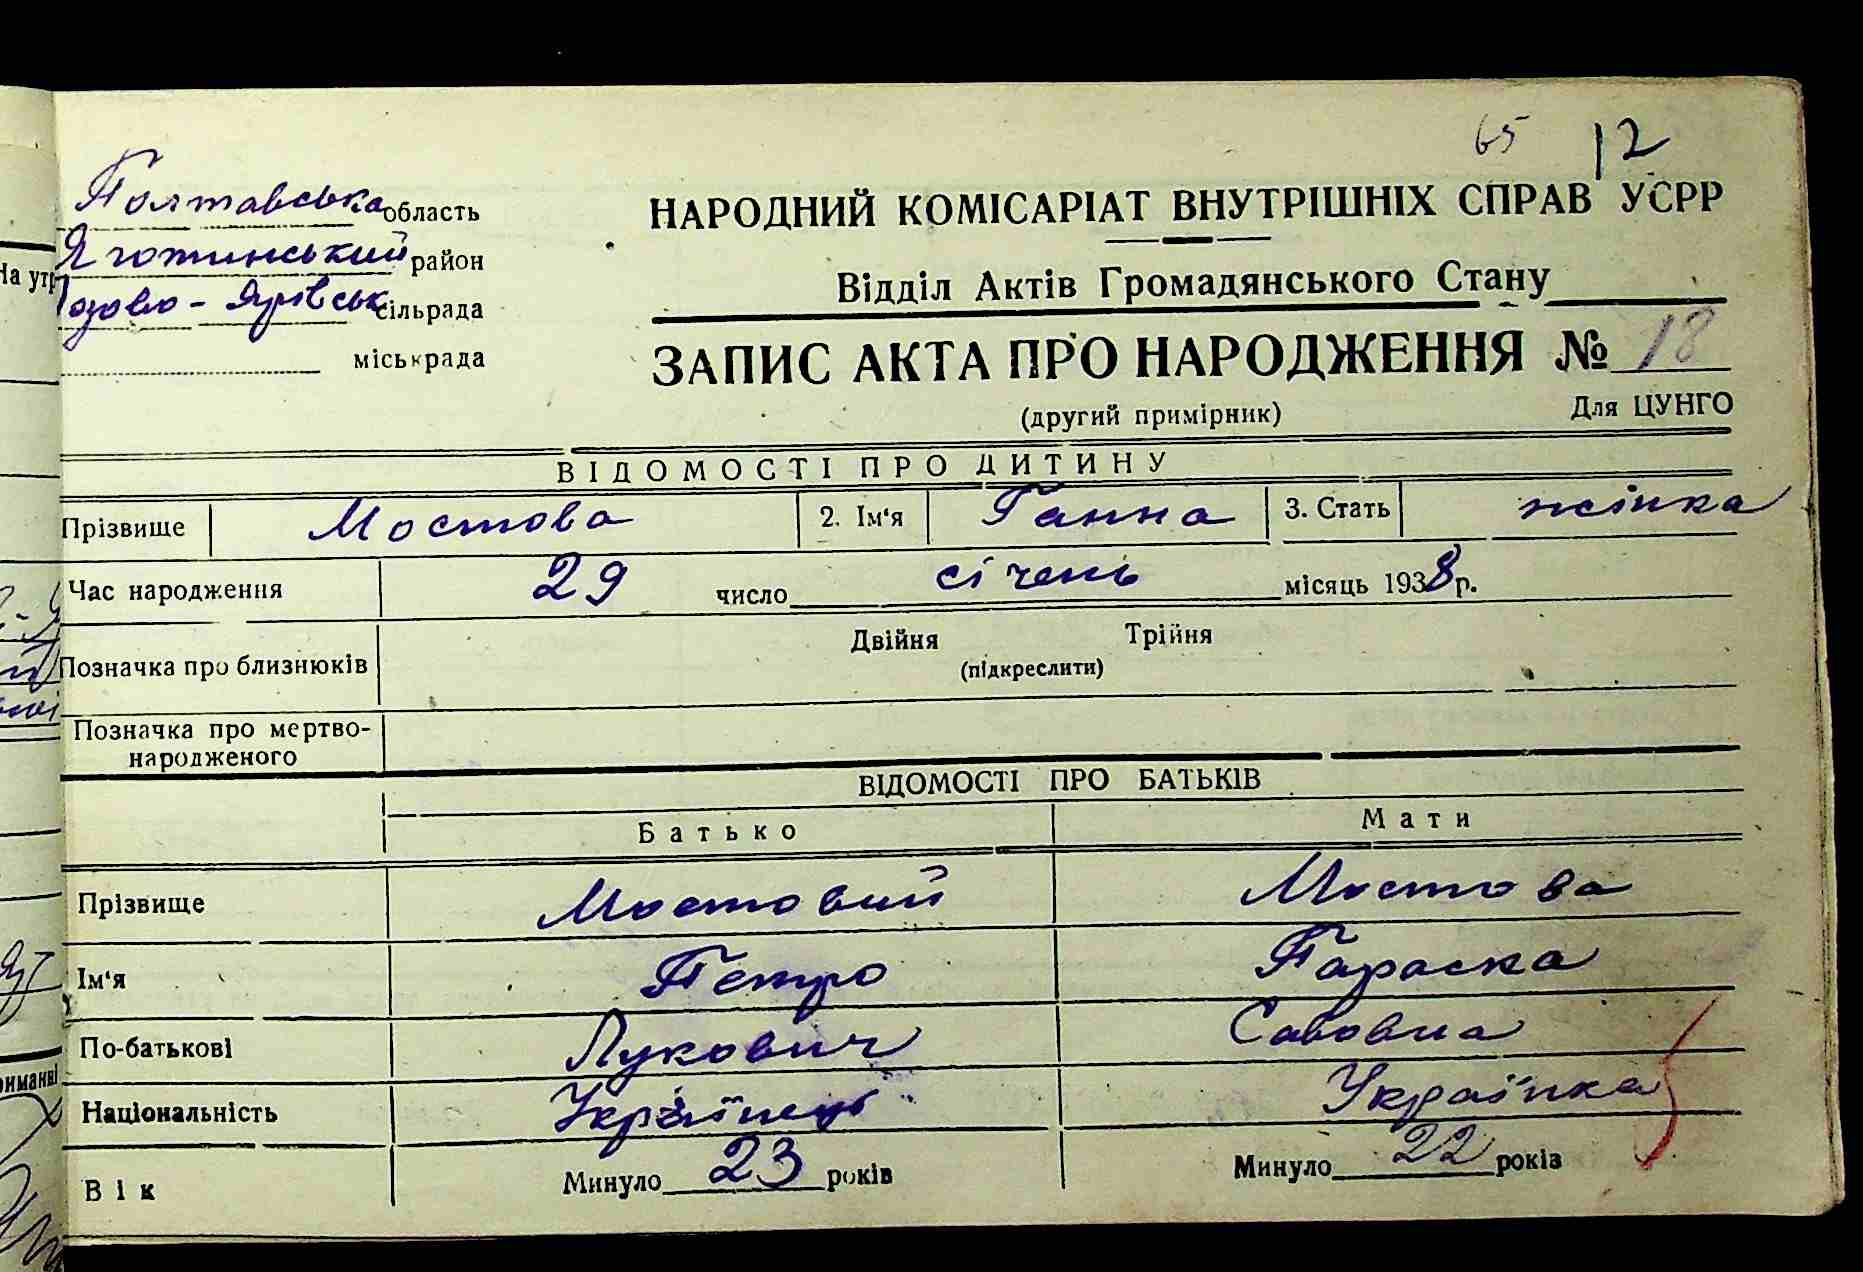 65 12
Полтавська область
Яготинський район
сільрада
міськрада
НАРОДНИЙ КОМІСАРІАТ ВНУТРІШНІХ СПРАВ УСРР
Відділ Актів Громадянського Стану
ЗАПИС АКТА ПРО НАРОДЖЕННЯ № 18
(другий примірник) Для ЦУНГО
ВІДОМОСТІ ПРО ДИТИНУ
Прізвище Мостова 2. Ім'я Ганна 3. Стать жінка
Час народження 29 число січень місяць 1938 р.
Позначка про близнюків Двійня Трійня
(підкреслити)
Позначка про мертво-
народженого
ВІДОМОСТІ ПРО БАТЬКІВ
Батько Мати
Прізвище Мостовий Мостова
Ім'я Петро Параска
По-батькові Лукович Савовна
Національність Українець Українка
Вік Минуло 23 років Минуло 22 років